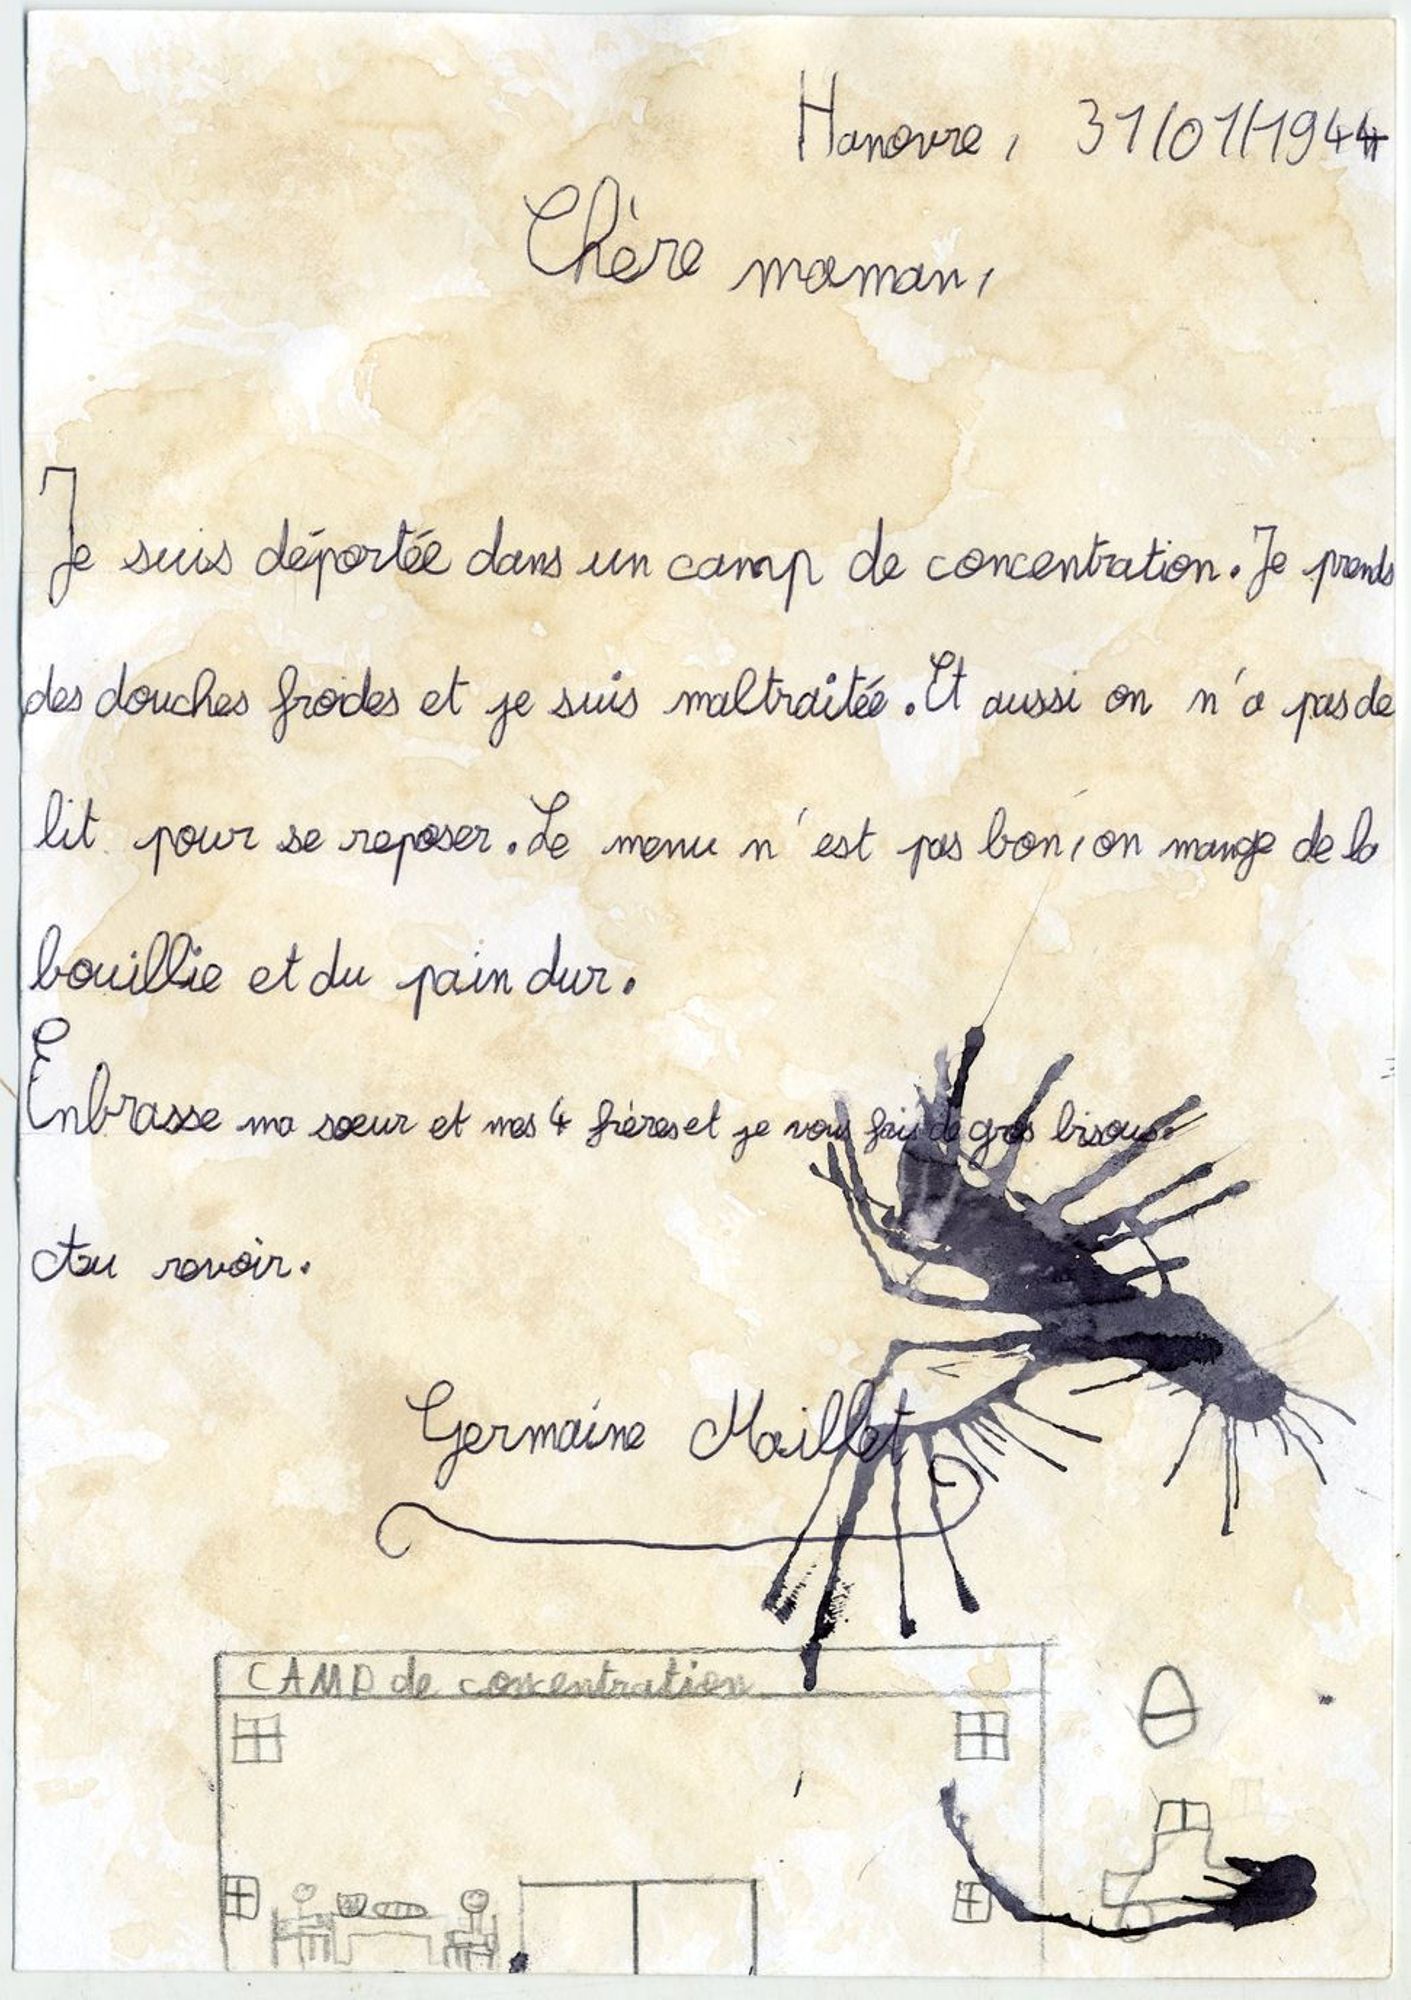 Hanovre, 31/01/1944
Chère maman,
Je suis déportée dans un camp de concentration. Je prends
des douches froides et je suis maltraitée. Et aussi on n'a pas de
lit pour se reposer. Le menu n'est pas bon, on mange de la
bouillie et du pain dur.
Enbrasse ma soeur et mes 4 frères et je vous fais de gros bisous.
Au revoir.
Germaine Maillet
CAMP de concentration